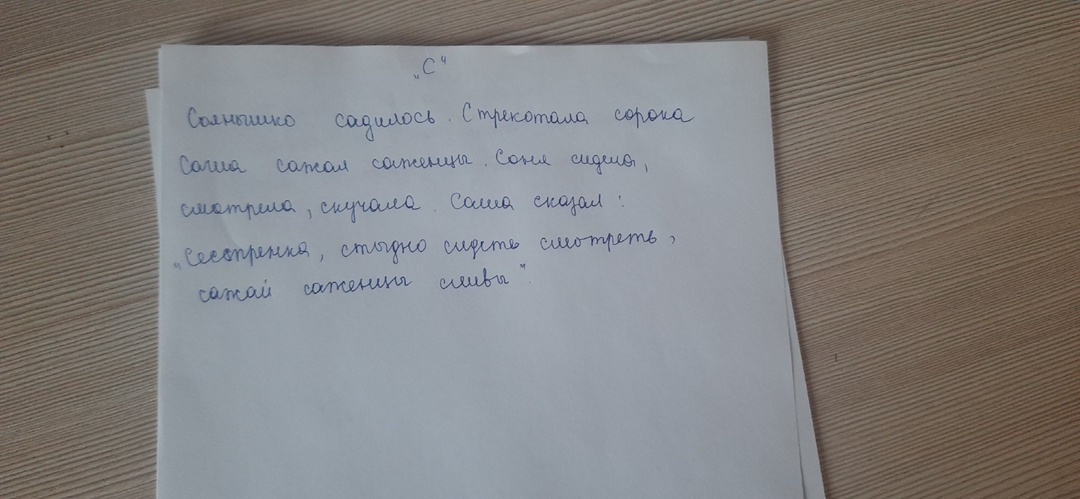 „С“
Солнышко садилось. Стрекотала сорока
Саша сажал саженцы. Соня сидела,
смотрела, скучала. Саша сказал:
„Сестренка, стыдно сидеть смотреть,
сажай саженцы сливы".